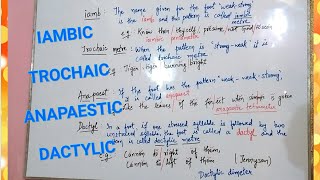 iamb: The name given for the foot "weak-strong"
is the iamb and this pattern is called iambic
metre
IAMBIC
e.g Know then thyself, presume not God to scan
iambic pentameter
Trochaic metre: When the pattern is "strong-weak" it is
called trochaic metre.
TROCHAIC
e.g Tiger! Tiger! burning bright
Anapaest: If the foot has the pattern "weak-weak-strong",
it is called anapaest
ANAPAESTIC
e.g Like the leaves of the forest when summer is green
(anapaestic tetrameter)
Dactyl: In a foot, if one stressed syllable is followed by two
unstressed syllables, the foot is called a dactyl and the
is called dactylic metre.
DACTYLIC
e.g Cannon to right of them,
Cannon to left of them (Tennyson)
Dactylic dimeter